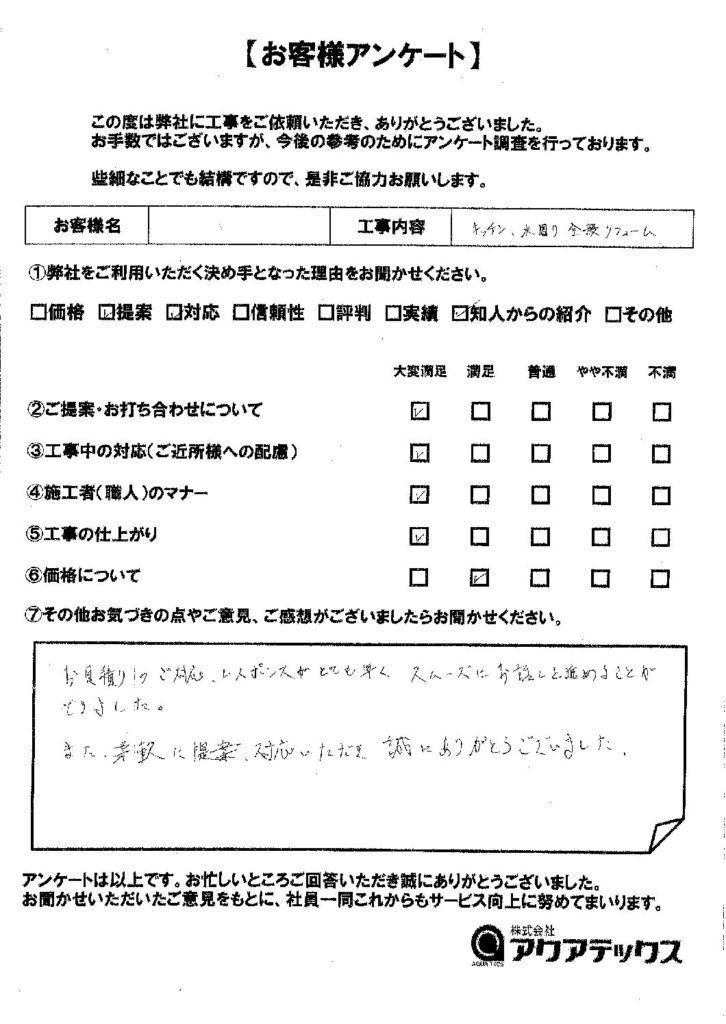 【お客様アンケート】
この度は弊社に工事をご依頼いただき、ありがとうございました。
お手数ではございますが、今後の参考のためにアンケート調査を行っております。
些細なことでも結構ですので、是非ご協力お願いします。
お客様名 工事内容 キッチン、水回り 全般リフォーム
①弊社をご利用いただく決め手となった理由をお聞かせください。
□価格 ☑提案 ☑対応 □信頼性 □評判 □実績 ☑知人からの紹介 □その他
大変満足 満足 普通 やや不満 不満
②ご提案・お打ち合わせについて ☑ □ □ □ □
③工事中の対応(ご近所様への配慮) ☑ □ □ □ □
④施工者(職人)のマナー ☑ □ □ □ □
⑤工事の仕上がり ☑ □ □ □ □
⑥価格について □ ☑ □ □ □
⑦その他お気づきの点やご意見、ご感想がございましたらお聞かせください。
お見積りのご対応、レスポンスがとても早く スムーズにお話しを進めることが
できました。
また、柔軟に提案、対応いただき 誠にありがとうございました。
アンケートは以上です。お忙しいところご回答いただき誠にありがとうございました。
お聞かせいただいたご意見をもとに、社員一同これからもサービス向上に努めてまいります。
株式会社
アクアテックス